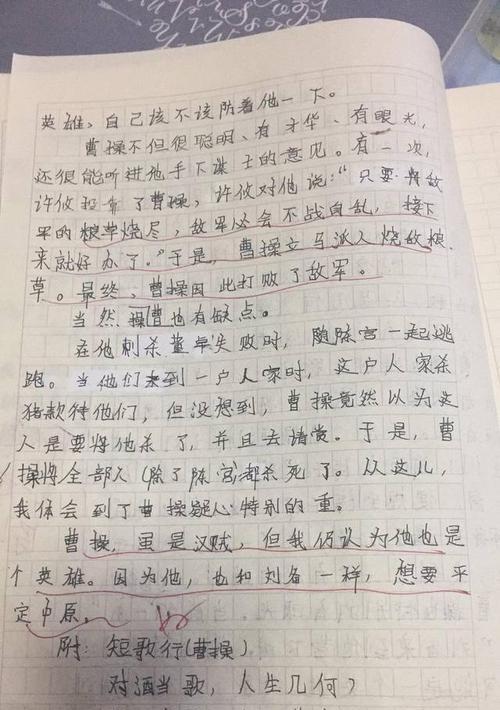 英雄，自己该不该防着他一下。
曹操不但很聪明、有才华、有眼光，
还很能听进他手下谋士的意见。有一次，
许攸投靠了曹操，许攸对他说："只要将敌
军的粮草烧尽，敌军必会不战自乱，接下
来就好办了。"于是，曹操立马派人烧敌粮
草。最终，曹操因此打败了敌军。
当然操曹也有缺点。
在他刺杀董卓失败时，随陈宫一起逃
跑。当他们来到一户人家时，这户人家杀
猪款待他们，但没想到，曹操竟然以为这
人是要将他杀了，并且去请赏。于是，曹
操将全部人（除了陈宫）都杀死了。从这儿，
我体会到了曹操疑心特别的重。
曹操，虽是汉贼，但我仍认为他也是
个英雄。因为他，也和刘备一样，想要平
定中原。
附：短歌行（曹操）
对酒当歌，人生几何？